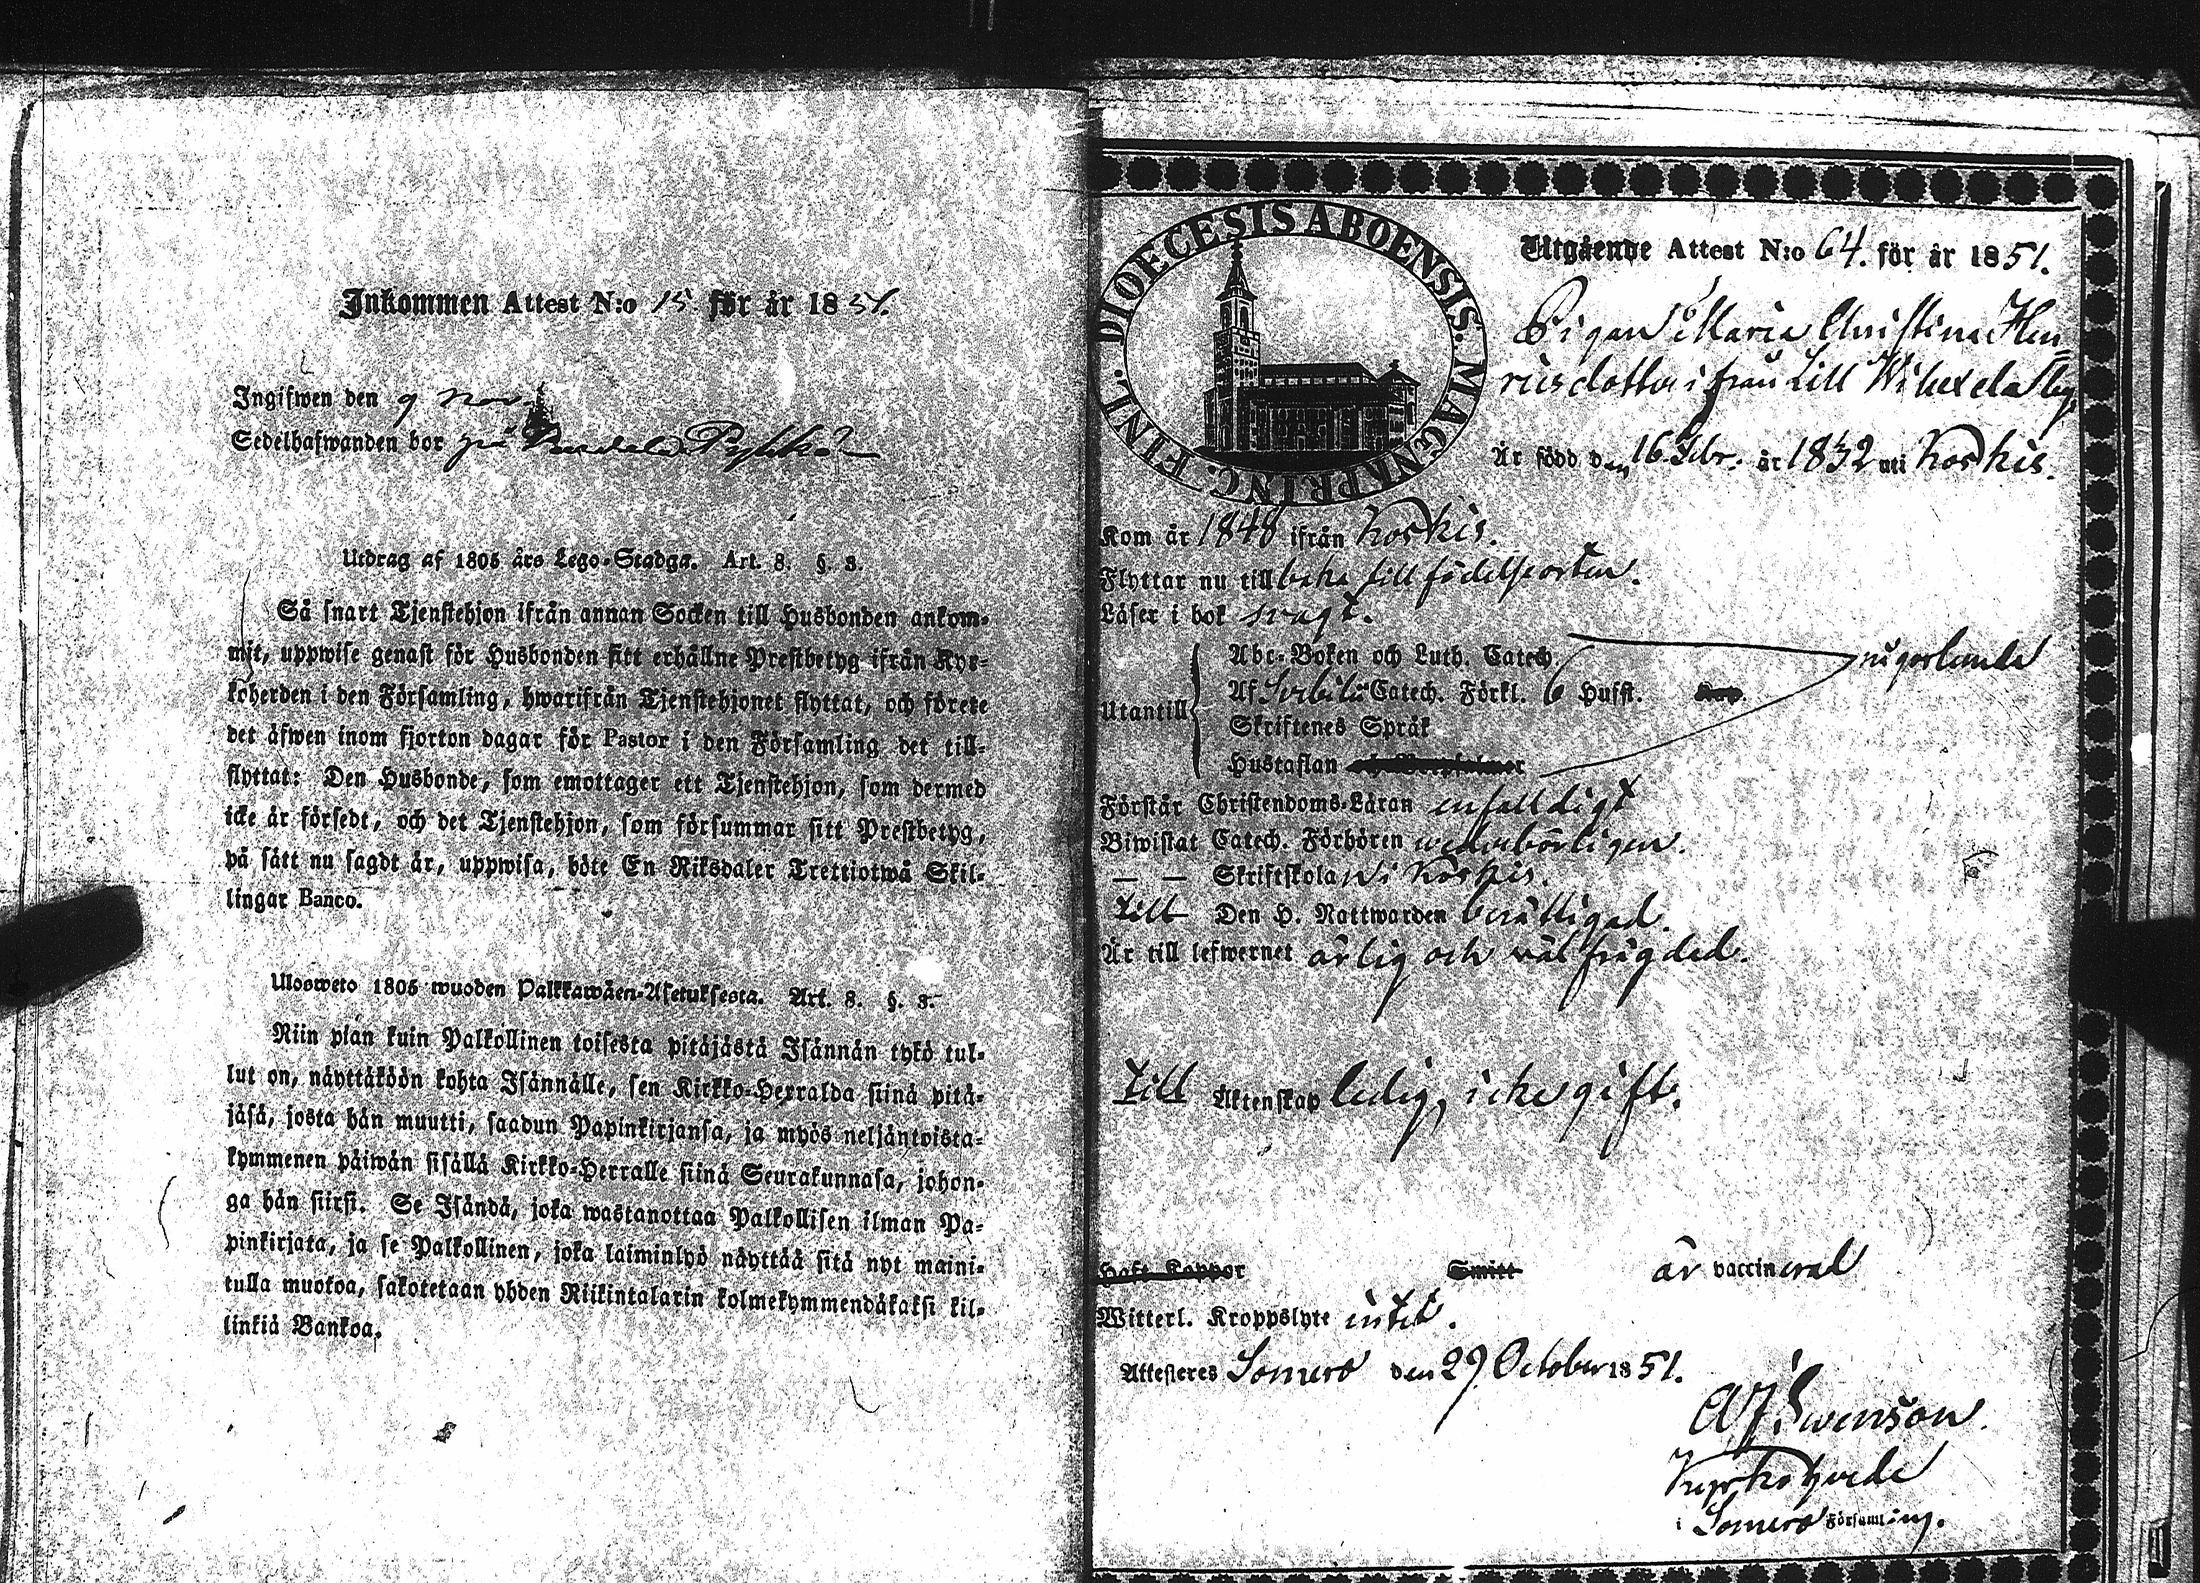 Inkommen Attest N:o 15 för år 1851.
Ingifwen den 9 Nov.
Sedelhafwanden bor på
Utdrag af 1805 års Lego-Stadga. Art. 8. §. 3.
Så snart Tjenstehjon ifrån annan Socken till Husbonden ankom-
mit, uppwise genast för Husbonden sitt erhållne Prestbetyg ifrån Kyr-
koherden i den Församling, hwarifrån Tjenstehjonet flyttat, och förete
det äfwen inom fjorton dagar för Pastor i den Församling det till-
flyttat: Den Husbonde, som emottager ett Tjenstehjon, som dermed
icke är försedt, och det Tjenstehjon, som försummar sitt Prestbetyg,
på sätt nu sagdt är, uppwisa, böte En Riksdaler Trettiotwå Skil-
lingar Banco.
Ulosweto 1805 wuoden Palkkawäen-Asetuksesta. Art. 8. §. 3.
Niin pian kuin Palkollinen toisesta pitäjästä Isännän tykö tul-
lut on, näyttäköön kohta Isännälle, sen Kirkko-Herralda siinä pitä-
jäsä, josta hän muutti, saadun Papinkirjansa, ja myös neljäntoista-
kymmenen päiwän sisällä Kirkko-Herralle siinä Seurakunnasa, johon-
ga hän siirsi. Se Isändä, joka wastanottaa Palkollisen ilman Pa-
pinkirjata, ja se Palkollinen, joka laiminlyö näyttää sitä nyt maini-
tulla muotoa, sakotetaan yhden Riikintalarin kolmekymmendäkaksi kil-
linkiä Bankoa.
DIOECESIS ABOENSIS. MAGN. PRINC. FINL.
Utgående Attest N:o 64. för år 1851.
Pigan Maria Christina Hen=
ricsdotter ifrån Lill
Är född den 16 Febr. år 1832 uti Koskis.
Kom år 1848 ifrån Koskis.
Flyttar nu tillbaka till födelseorten.
Läser i bok svagt.
Utantill
Abc-Boken och Luth. Catech.
Af Svebilii Catech. Förkl. 6 Hufst. Kap.
Skriftenes Språk
Hustaflan
nöjorlunda
Förstår Christendoms-Läran enfaldigt
Biwistat Catech. Förhören wederbörligen.
— — Skriftskolan i Koskis.
Till Den H. Nattwarden berättigad.
Är till lefwernet ärlig och wälfrägdad.
Till Äktenskap ledig, icke gift.
Haft Koppor Smitt är vaccinerad
Witterl. Kroppslyte intet.
Attesteres Somero den 29 October 1851.
A J Swenson.
Kyrkoherde
i Somero Församling.